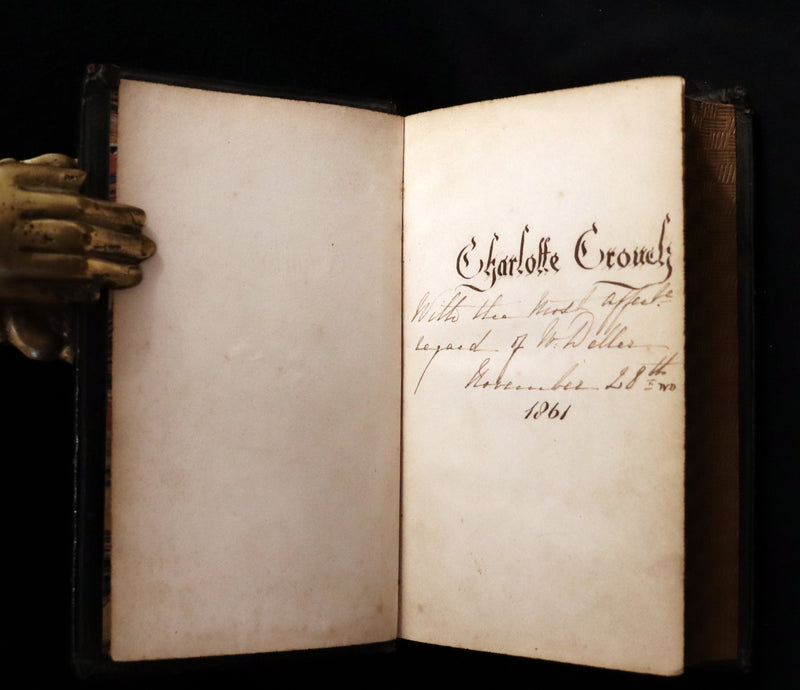 Charlotte Crouch
With the most affecte
regard of W. Deller
November 28th
1861